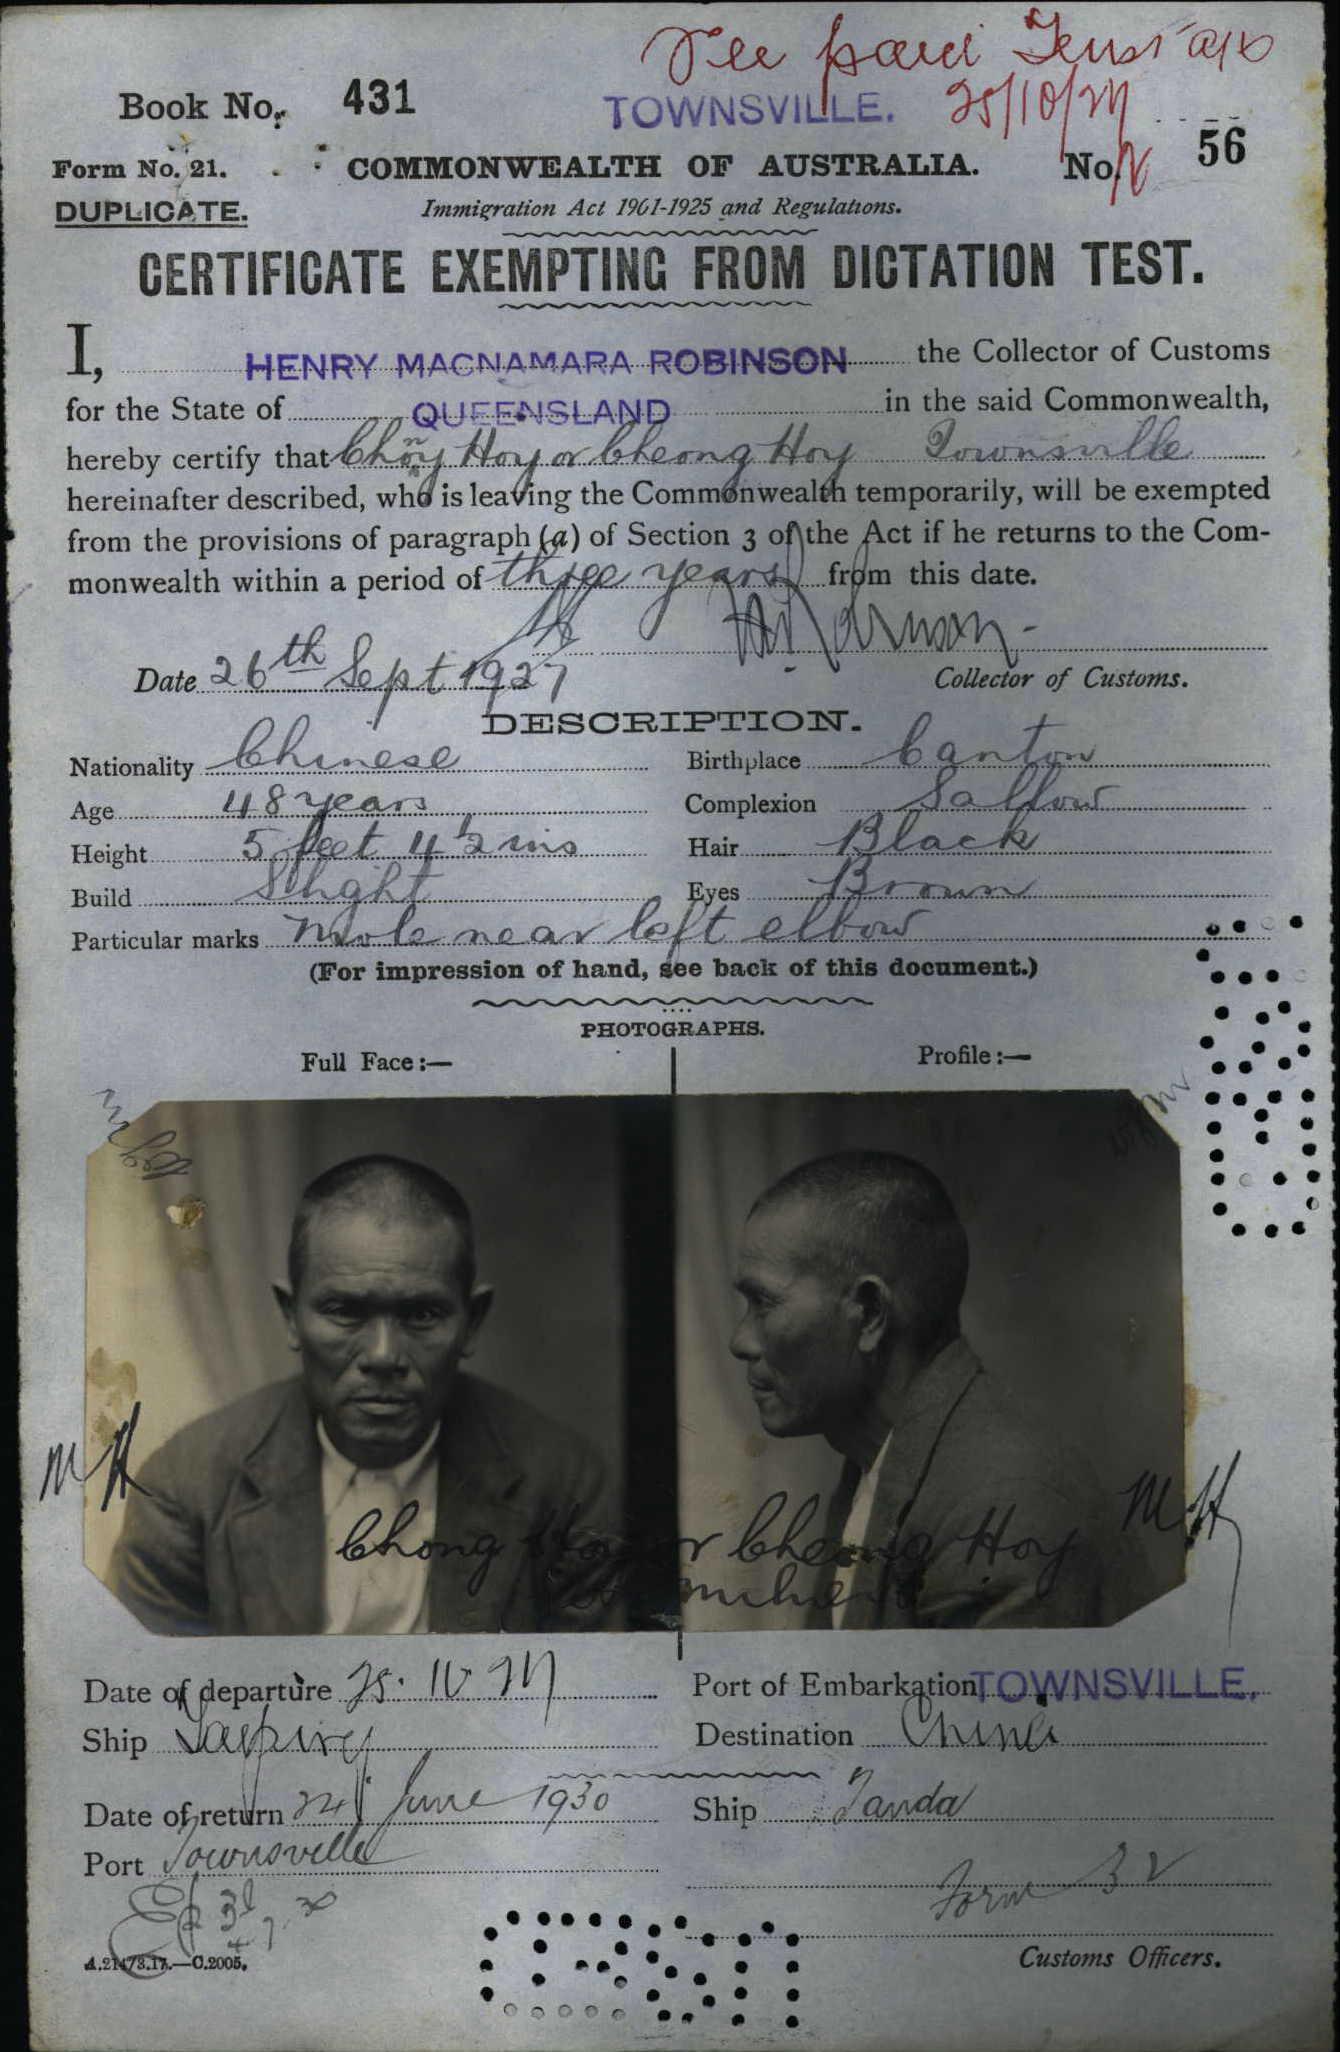 Fee paid Trust a/c
Book No. 431 TOWNSVILLE. 25/10/27
Form No. 21. COMMONWEALTH OF AUSTRALIA. No. 56
DUPLICATE. Immigration Act 1901-1925 and Regulations.
CERTIFICATE EXEMPTING FROM DICTATION TEST.
I, HENRY MACNAMARA ROBINSON the Collector of Customs
for the State of QUEENSLAND in the said Commonwealth,
hereby certify that Chong Hoy or Cheong Hoy Townsville
hereinafter described, who is leaving the Commonwealth temporarily, will be exempted
from the provisions of paragraph (a) of Section 3 of the Act if he returns to the Com-
monwealth within a period of three years from this date.
Date 26th Sept 1927 Collector of Customs.
DESCRIPTION.
Nationality Chinese Birthplace Canton
Age 48 years Complexion Sallow
Height 5 feet 4 1/2 ins Hair Black
Build Slight Eyes Brown
Particular marks Mole near left elbow
(For impression of hand, see back of this document.)
PHOTOGRAPHS.
Full Face:— Profile:—
MH MH
Chong Hoy or Cheong Hoy
Date of departure 25.10.27 Port of Embarkation TOWNSVILLE.
Ship Taiping Destination China
Date of return 24 June 1930 Ship Tanda
Port Townsville
Form 32
A.21473.17.—C.2005. Customs Officers.